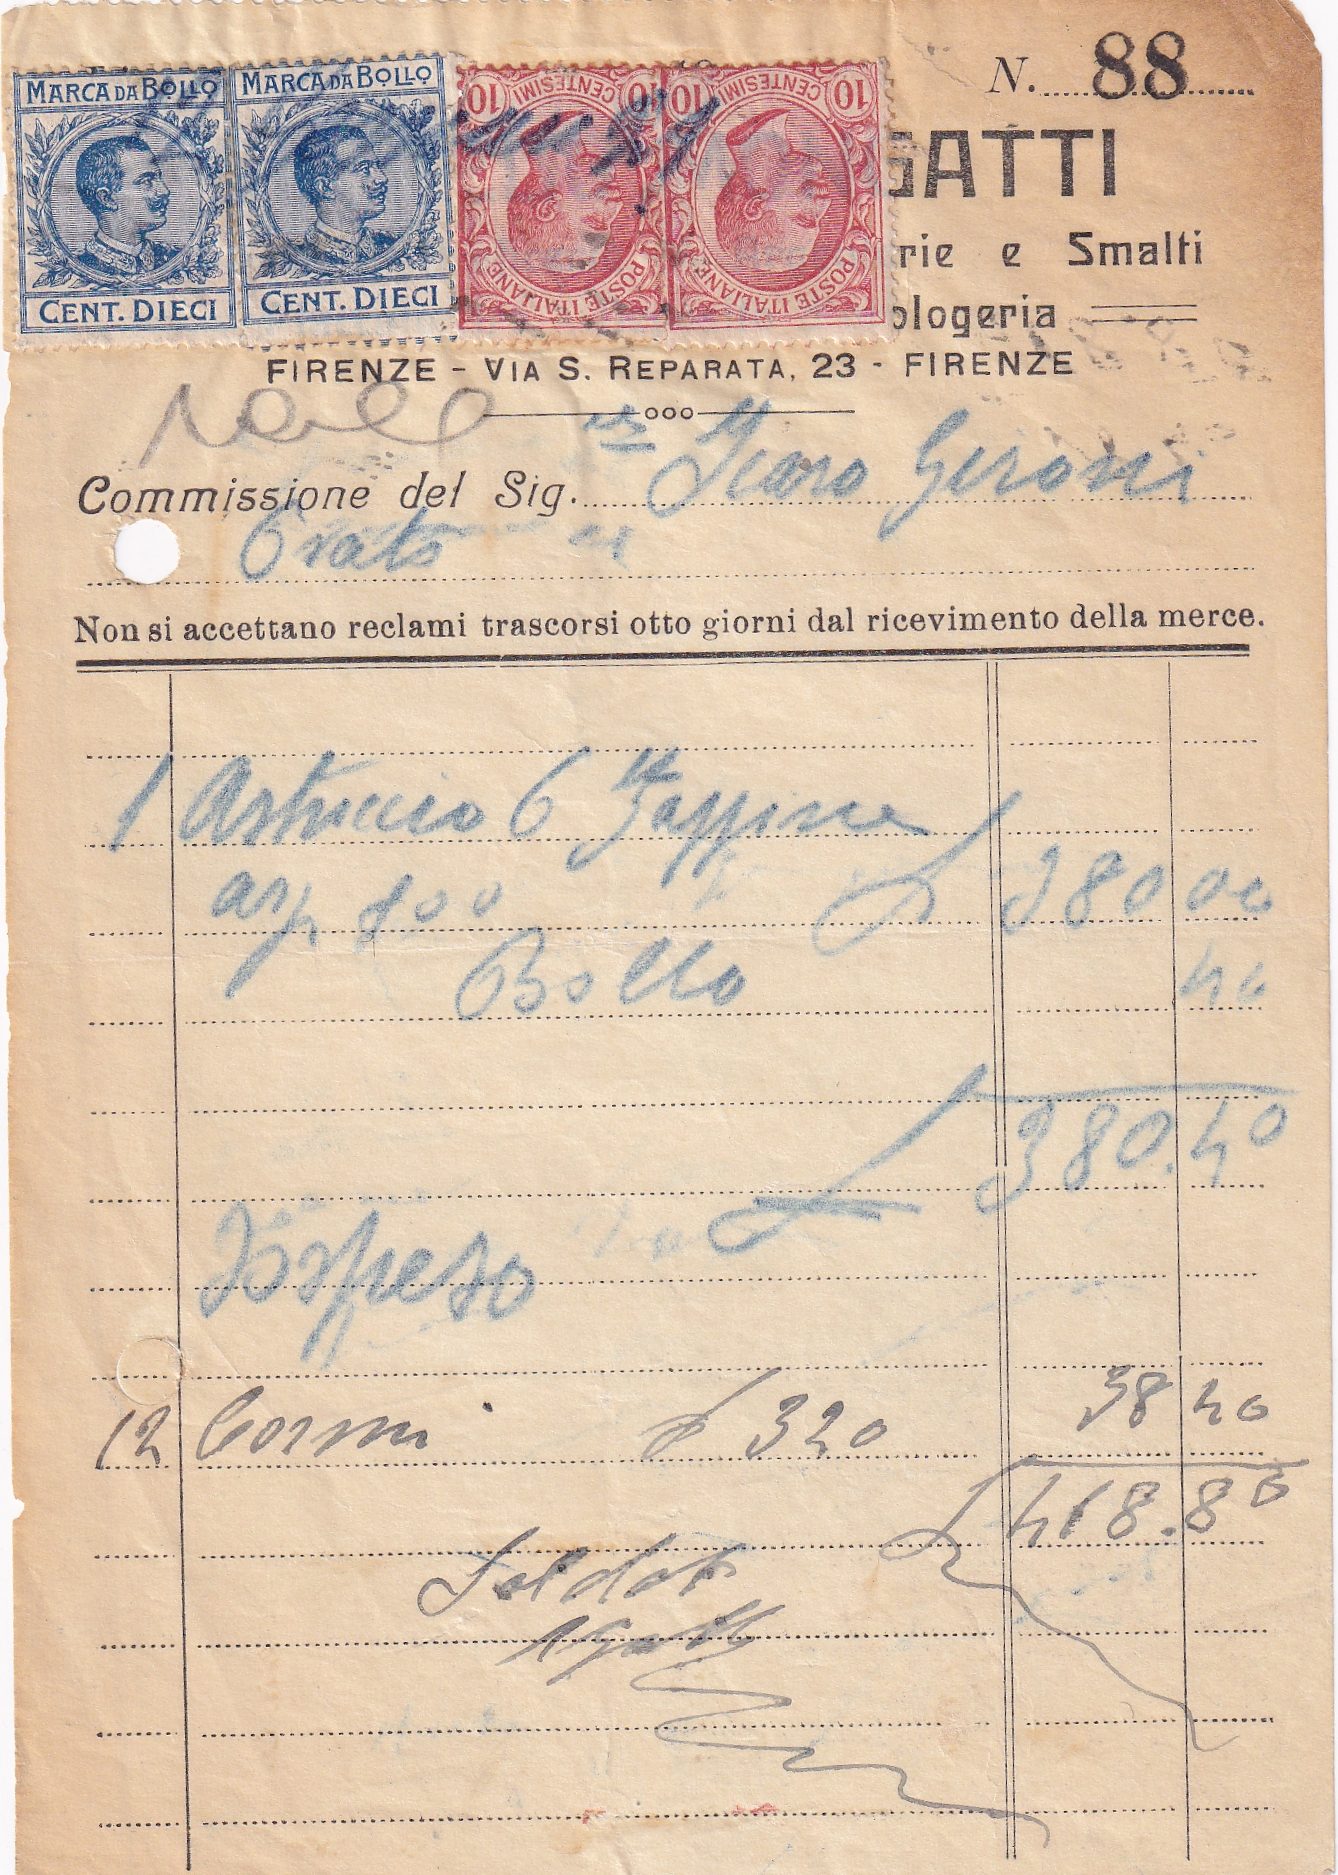 MARCA DA BOLLO
CENT. DIECI
MARCA DA BOLLO
CENT. DIECI
10 CENTESIMI 10
POSTE ITALIANE
10 CENTESIMI 10
POSTE ITALIANE
N. 88
GATTI
rie e Smalti
ologeria
FIRENZE - VIA S. REPARATA, 23 - FIRENZE
Commissione del Sig.
Prato
Non si accettano reclami trascorsi otto giorni dal ricevimento della merce.
1 Astuccio 6
arg 800 £ 380 00
Bollo 40
£ 380.40
Sospeso
12 £ 320 38 40
£ 418.80
Saldato